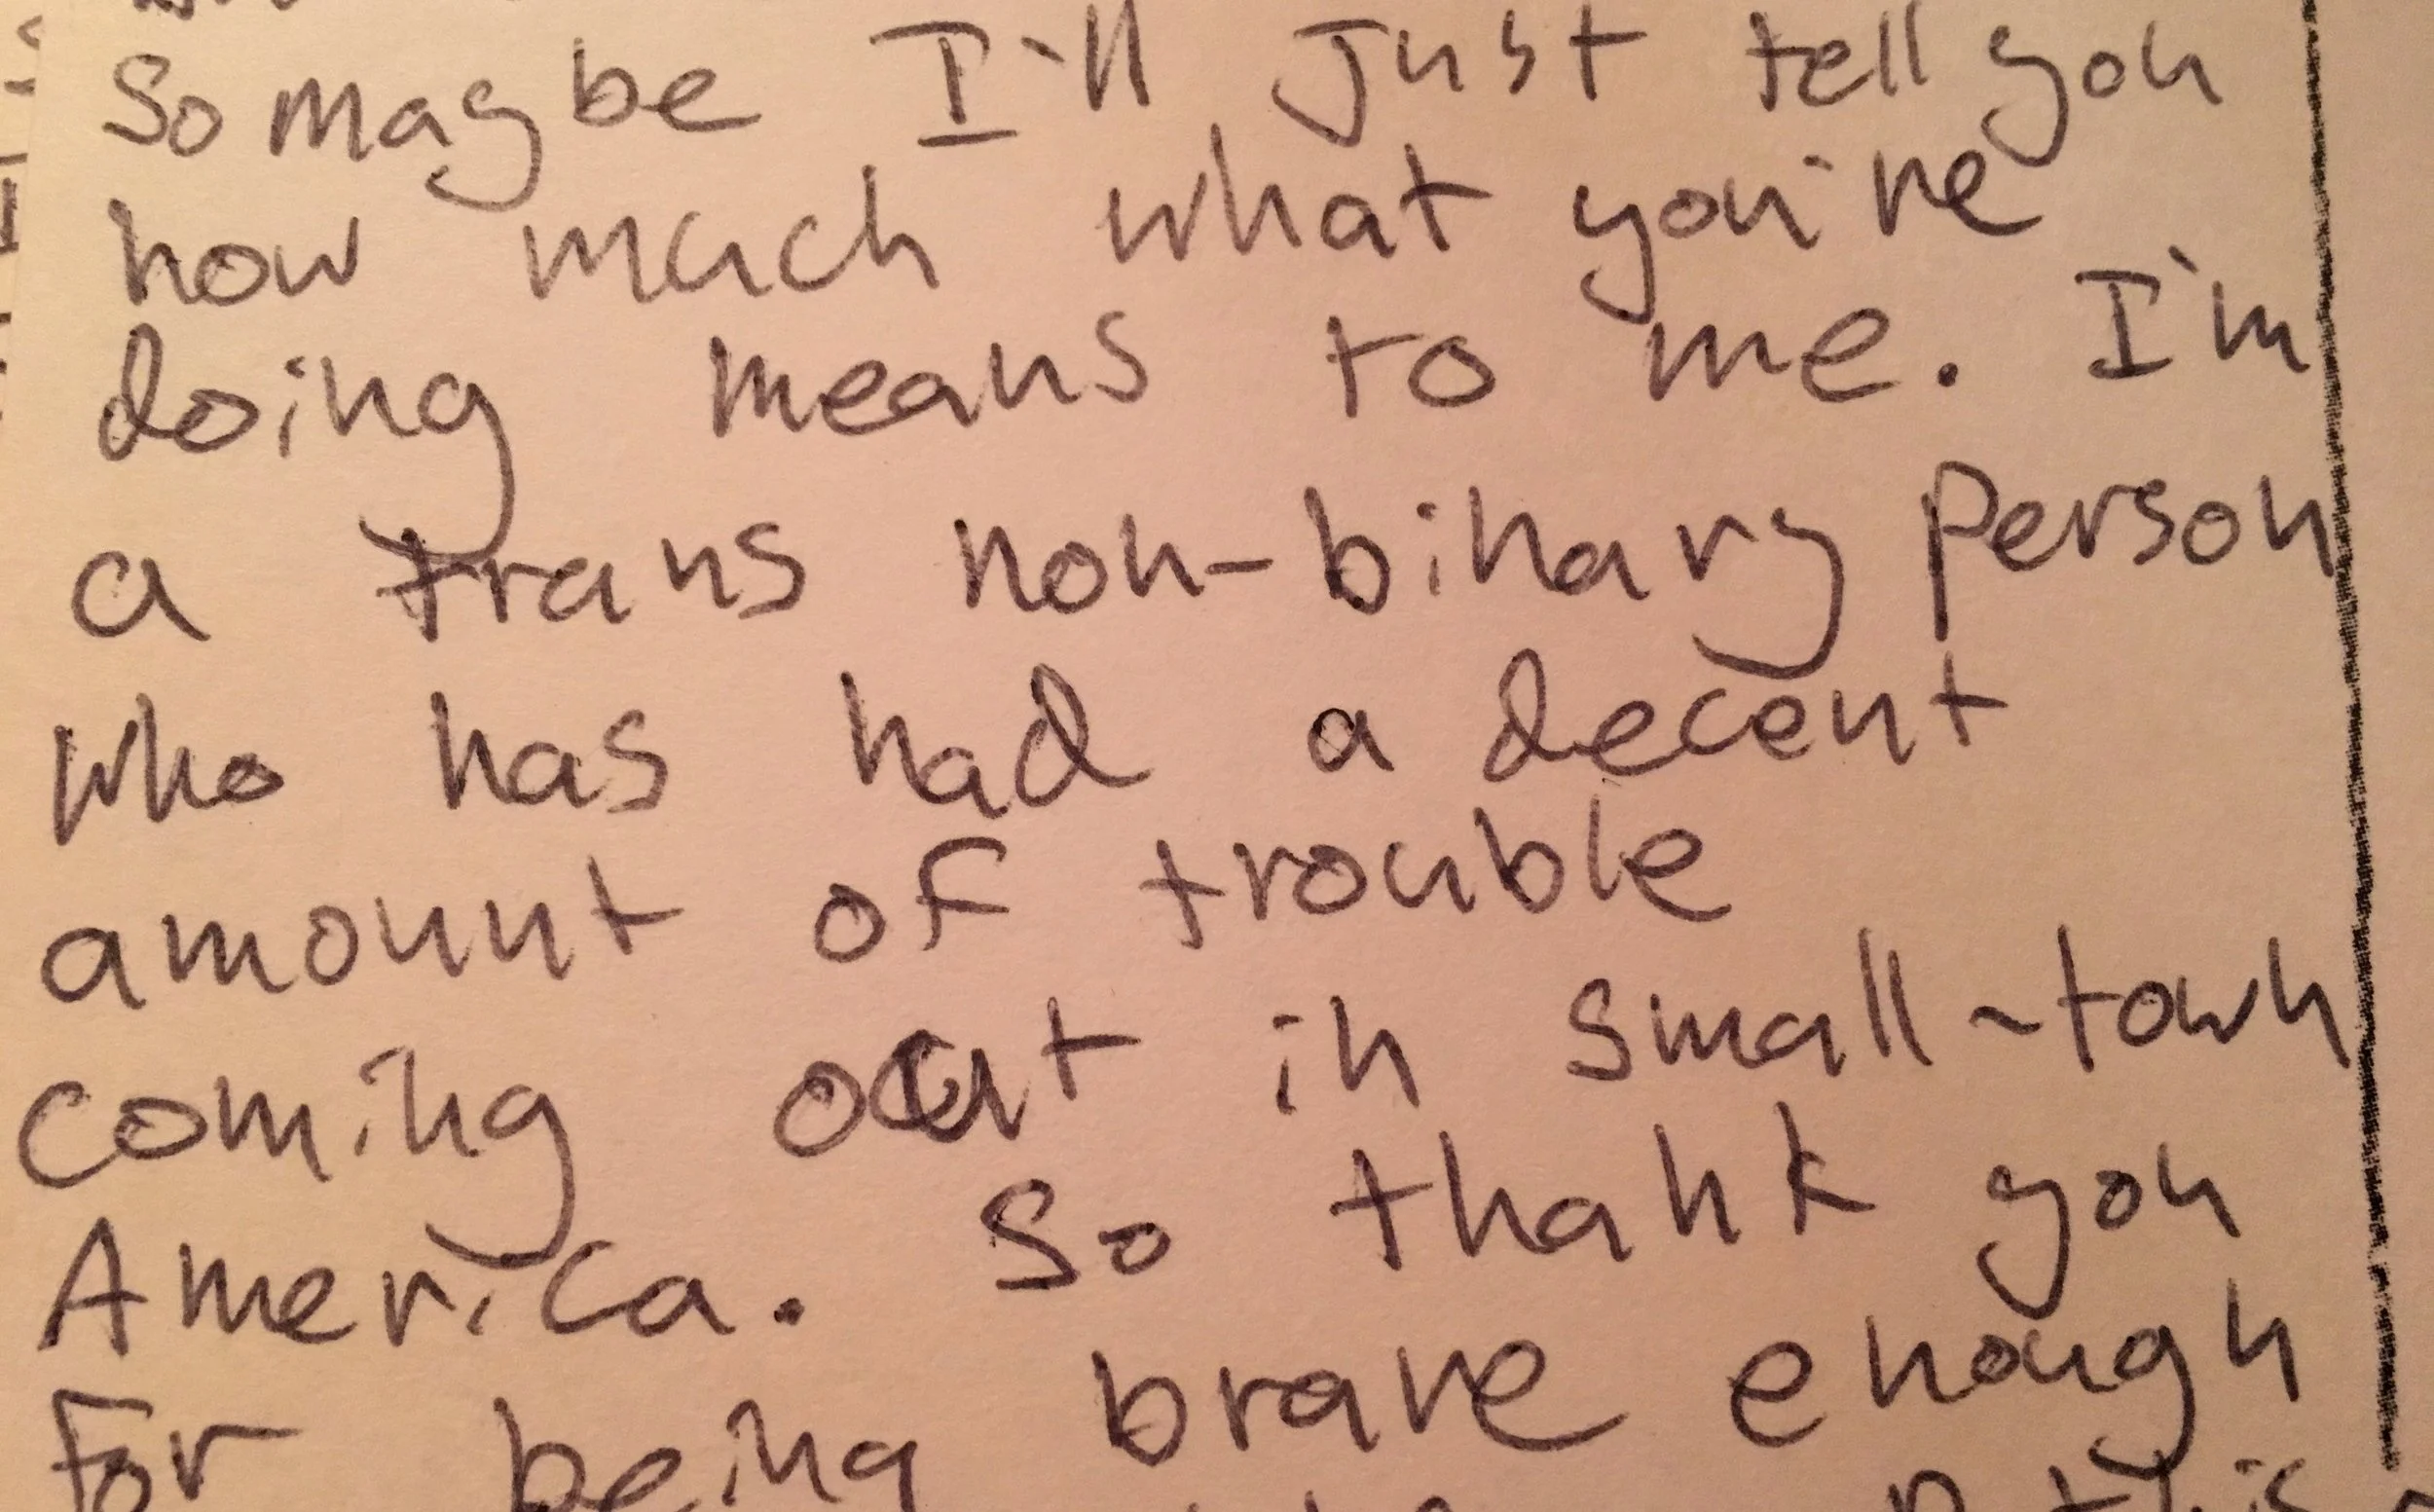 So maybe I'll just tell you
how much what you're
doing means to me. I'm
a trans non-binary person
who has had a decent
amount of trouble
coming out in small-town
America. So thank you
For being brave enough